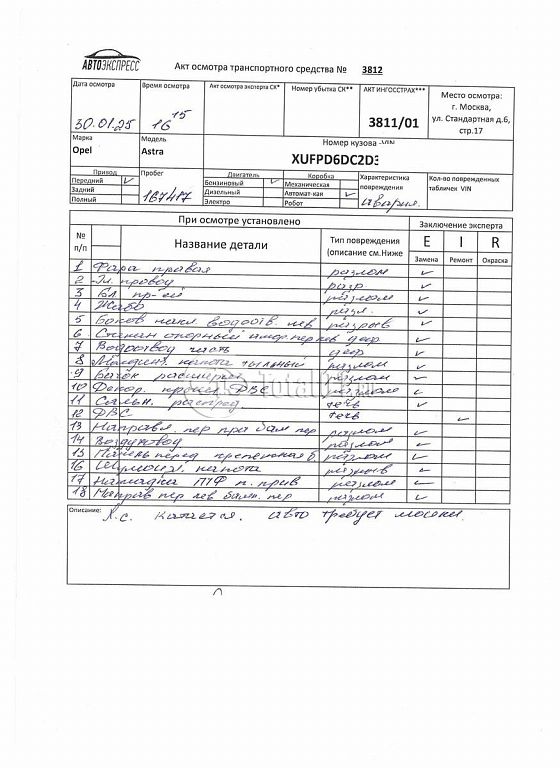 АВТОЭКСПРЕСС
Акт осмотра транспортного средства № 3812
Дата осмотра
30.01.25
Время осмотра
16 15
Акт осмотра эксперта СК*
Номер убытка СК**
АКТ ИНГОССТРАХ***
3811/01
Место осмотра:
г. Москва,
ул. Стандартная д.6,
стр.17
Марка
Opel
Модель
Astra
Номер кузова VIN
XUFPD6DC2D
Привод
Передний ✓
Задний
Полный
Пробег
167417
Двигатель
Бензиновый ✓
Дизельный
Электро
Коробка
Механическая
Автомат-кая ✓
Робот
Характеристика
повреждения
Авария
Кол-во поврежденных
табличек VIN
При осмотре установлено
Заключение эксперта
№ п/п
Название детали
Тип повреждения
(описание см.Ниже
E I R
Замена Ремонт Окраска
1 Фара правая разлом ✓
2 Эл. провод разр. ✓
3 Бл. пр-ей разлом ✓
4 разл. ✓
5 водоотв. лев разрыв ✓
6 опорный деф ✓
7 Водоотвод часть деф ✓
8 капота тыльный разлом ✓
9 Бачок расширит. разлом ✓
10 Декор. ДВС разлом ✓
11 Сальн. распред. течь ✓
12 ДВС течь ✓
13 Направл. пер пра бам пер разлом ✓
14 Воздуховод разлом ✓
15 Панель перед разлом ✓
16 Шумоизл. капота разрыв ✓
17 Накладка ПТФ п. прав разлом ✓
18 Направ пер лев бамп. пер разлом ✓
Описание: Л.с. катается. авто требует мойки